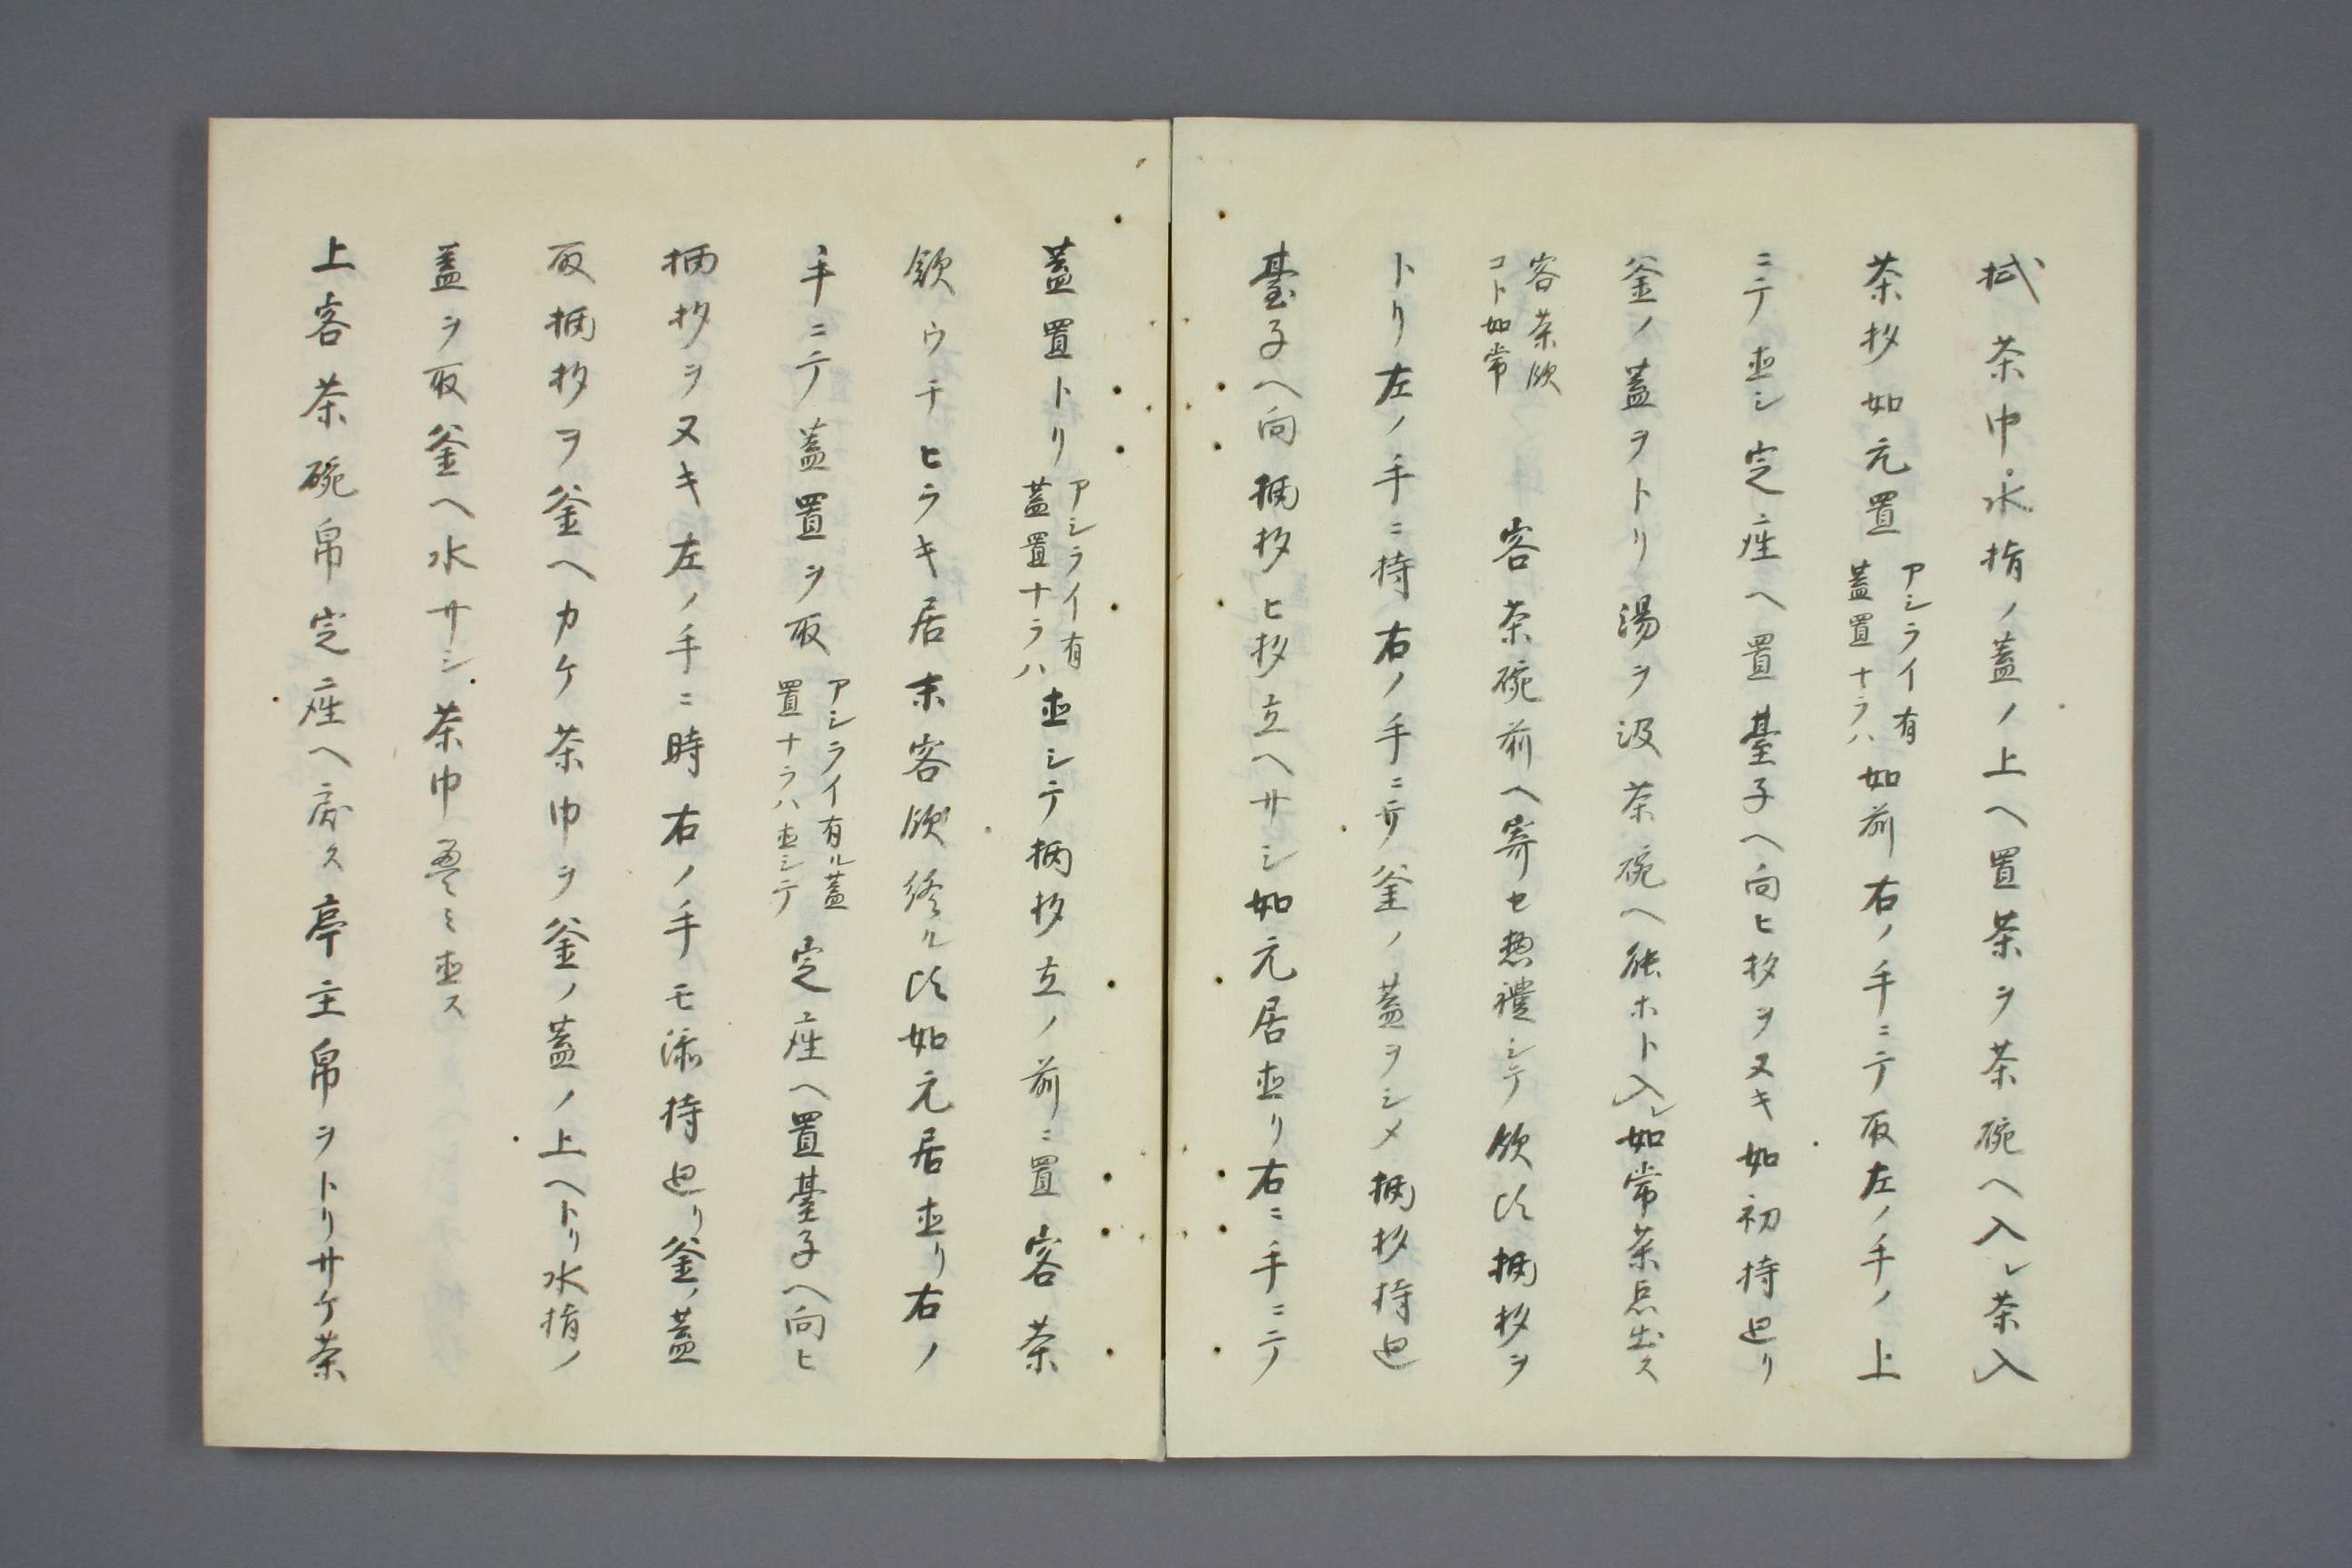 拭茶巾水指ノ蓋ノ上ヘ置茶ヲ茶碗ヘ入レ茶入
茶杓如元置
アシライ有
蓋置ナラハ
如前右ノ手ニテ取左ノ手ノ上
ニテ直シ定座ヘ置臺子ヘ向ヒ杓ヲヌキ如初持廻リ
釜ノ蓋ヲトリ湯ヲ汲茶碗ヘ能ホト入レ如常茶点出ス
客茶飲
コト如常
客茶碗前ヘ寄セ惣禮シテ飲時柄杓ヲ
トリ左ノ手ニ持右ノ手ニテ釜ノ蓋ヲシメ柄杓持廻
臺子ヘ向柄杓ヒ杓立ヘサシ如元居直リ右ニ手ニテ
蓋置トリ
アシライ有
蓋置ナラハ
直シテ柄杓立ノ前ニ置客茶
飲ウチヒラキ居末客飲終ル時如元居直リ右ノ
手ニテ蓋置ヲ取
アシライ有ル蓋
置ナラハ直シテ
定座ヘ置臺子ヘ向ヒ
柄杓ヲヌキ左ノ手ニ時右ノ手モ添持廻リ釜ノ蓋
取柄杓ヲ釜ヘカケ茶巾ヲ釜ノ蓋ノ上ヘトリ水指ノ
蓋ヲ取釜ヘ水サシ茶巾疊ミ直ス
上客茶碗帛定座ヘ戻ス亭主帛ヲトリサケ茶